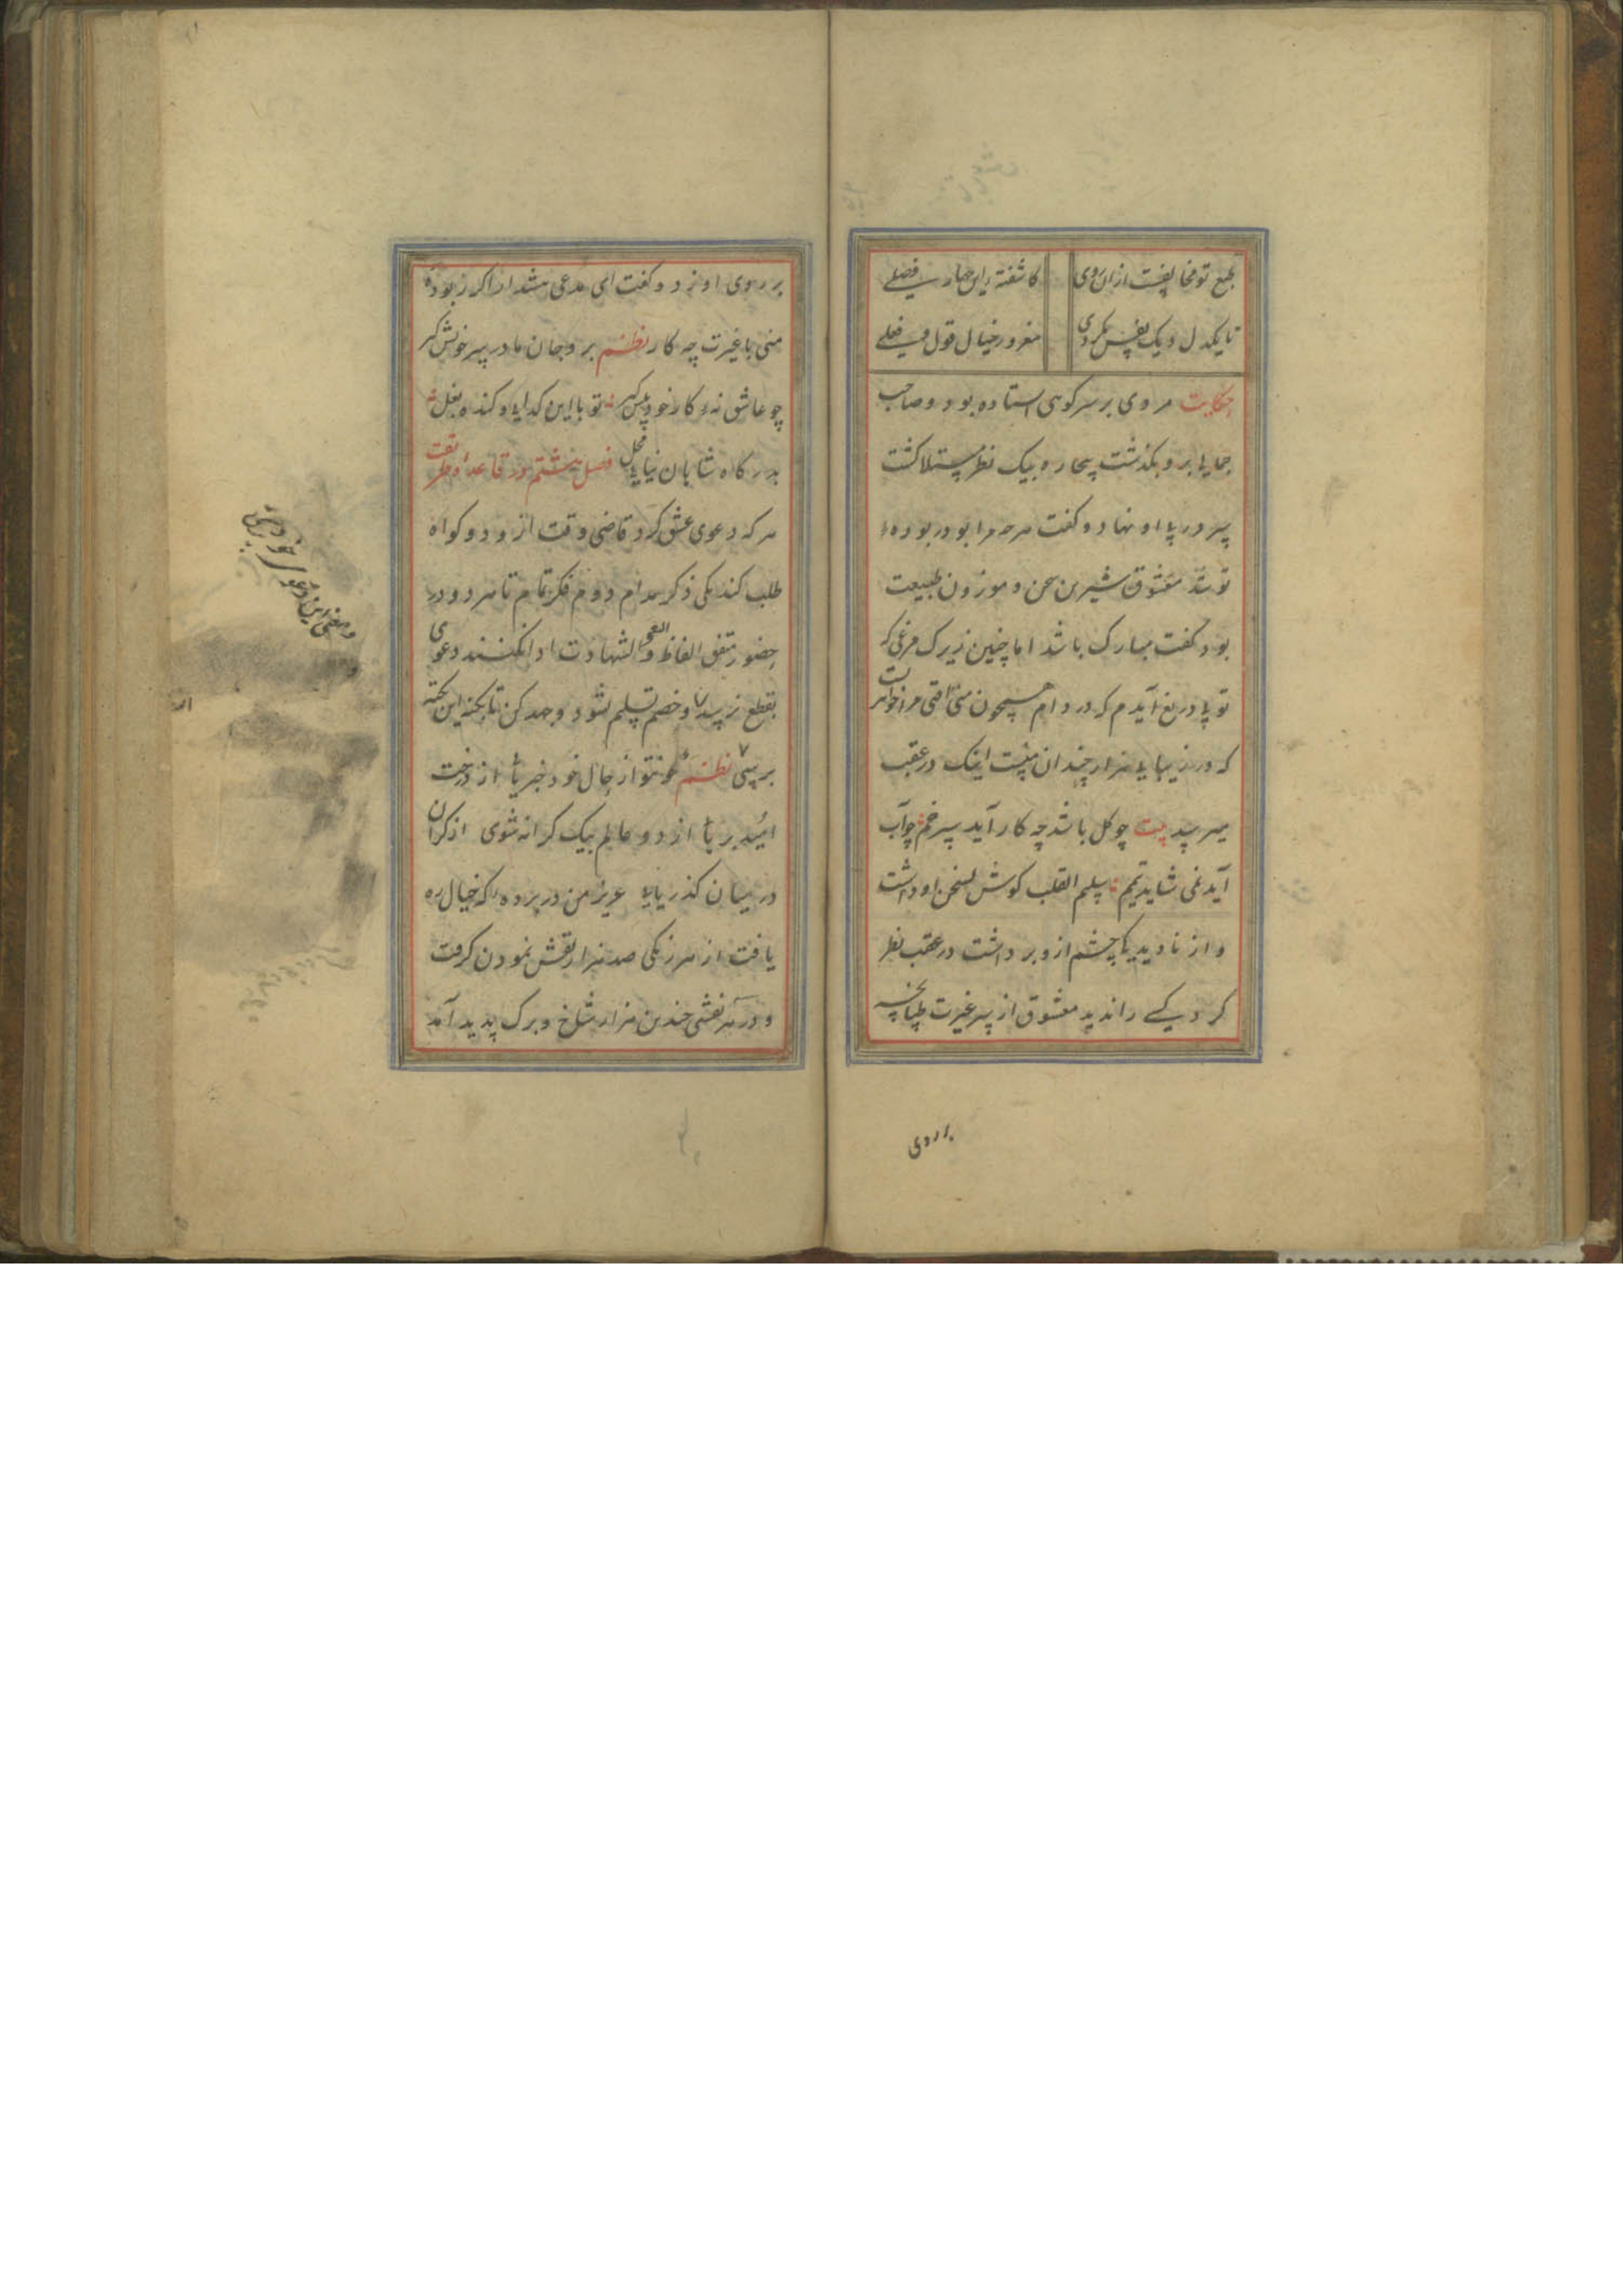 طبع تو مخالفست ازان روی
کاشفته این چهار فصلے
تا یکدل و یک نفس نکردی
مغرور خیال قول و فضلے
حکایت مردی بر سر کوهی استاده بود و صاحب
جمالی برو بگذشت بیچاره بیک نظر مبتلا کشت
سر در پا او نهاد و کفت هرچه مرا بود ربوده
تو شد معشوق شیرین سخن و موزون طبیعت
بود کفت مبارک باشد اما چنین زیرک مرغی که
تو یی دریغ آیدم که در دام همچون منی افتی مرا خواهریست
که در زیبایی هزار چندان منست اینک در عقب
میرسد بیت چو کل باشد چه کار آید سپرغم چو آب
آید نمی شاید تیمم سلیم القلب کوش بسخن او داشت
و از نادیدیکی چشم ازو برداشت در عقب نظر
کرد کسے را ندید معشوق از سر غیرت طپانچه
بر روی
بر روی او زد و کفت ای مدعی هشدار اکر ربوده
منی با غیرت چه کار نظم برو جان مادر سر خویش کیر
چو عاشق نهٔ کار خود پیش کیر تو با این کدایی و کنده بغل
بدرکاه شاهان نیابی محل فصل هشتم در قاعده و طریقت
هر که دعوی عشق کرد قاضی وقت ازو دو کواه
طلب کند یکی ذکر مدام دوم فکر تمام تا هر دو در
حضور متفق الفاظ و المعنی الشهادت ادا نکنند دعوی
بقطع نرسد و خصم تسلیم نشود و جهد کن تا بکنه این نکته
برسی نظم کر تو از حال خود خبر یابی از درخت
امید بر یابی از دو عالم بیک کرانه شوی از کران
در میان کذر یابی عزیز من در پرده که خیال ره
یافت از هر رنکی صد هزار نقش نمودن کرفت
و در هر نقشی چندین هزار شاخ و برک پدید آمد